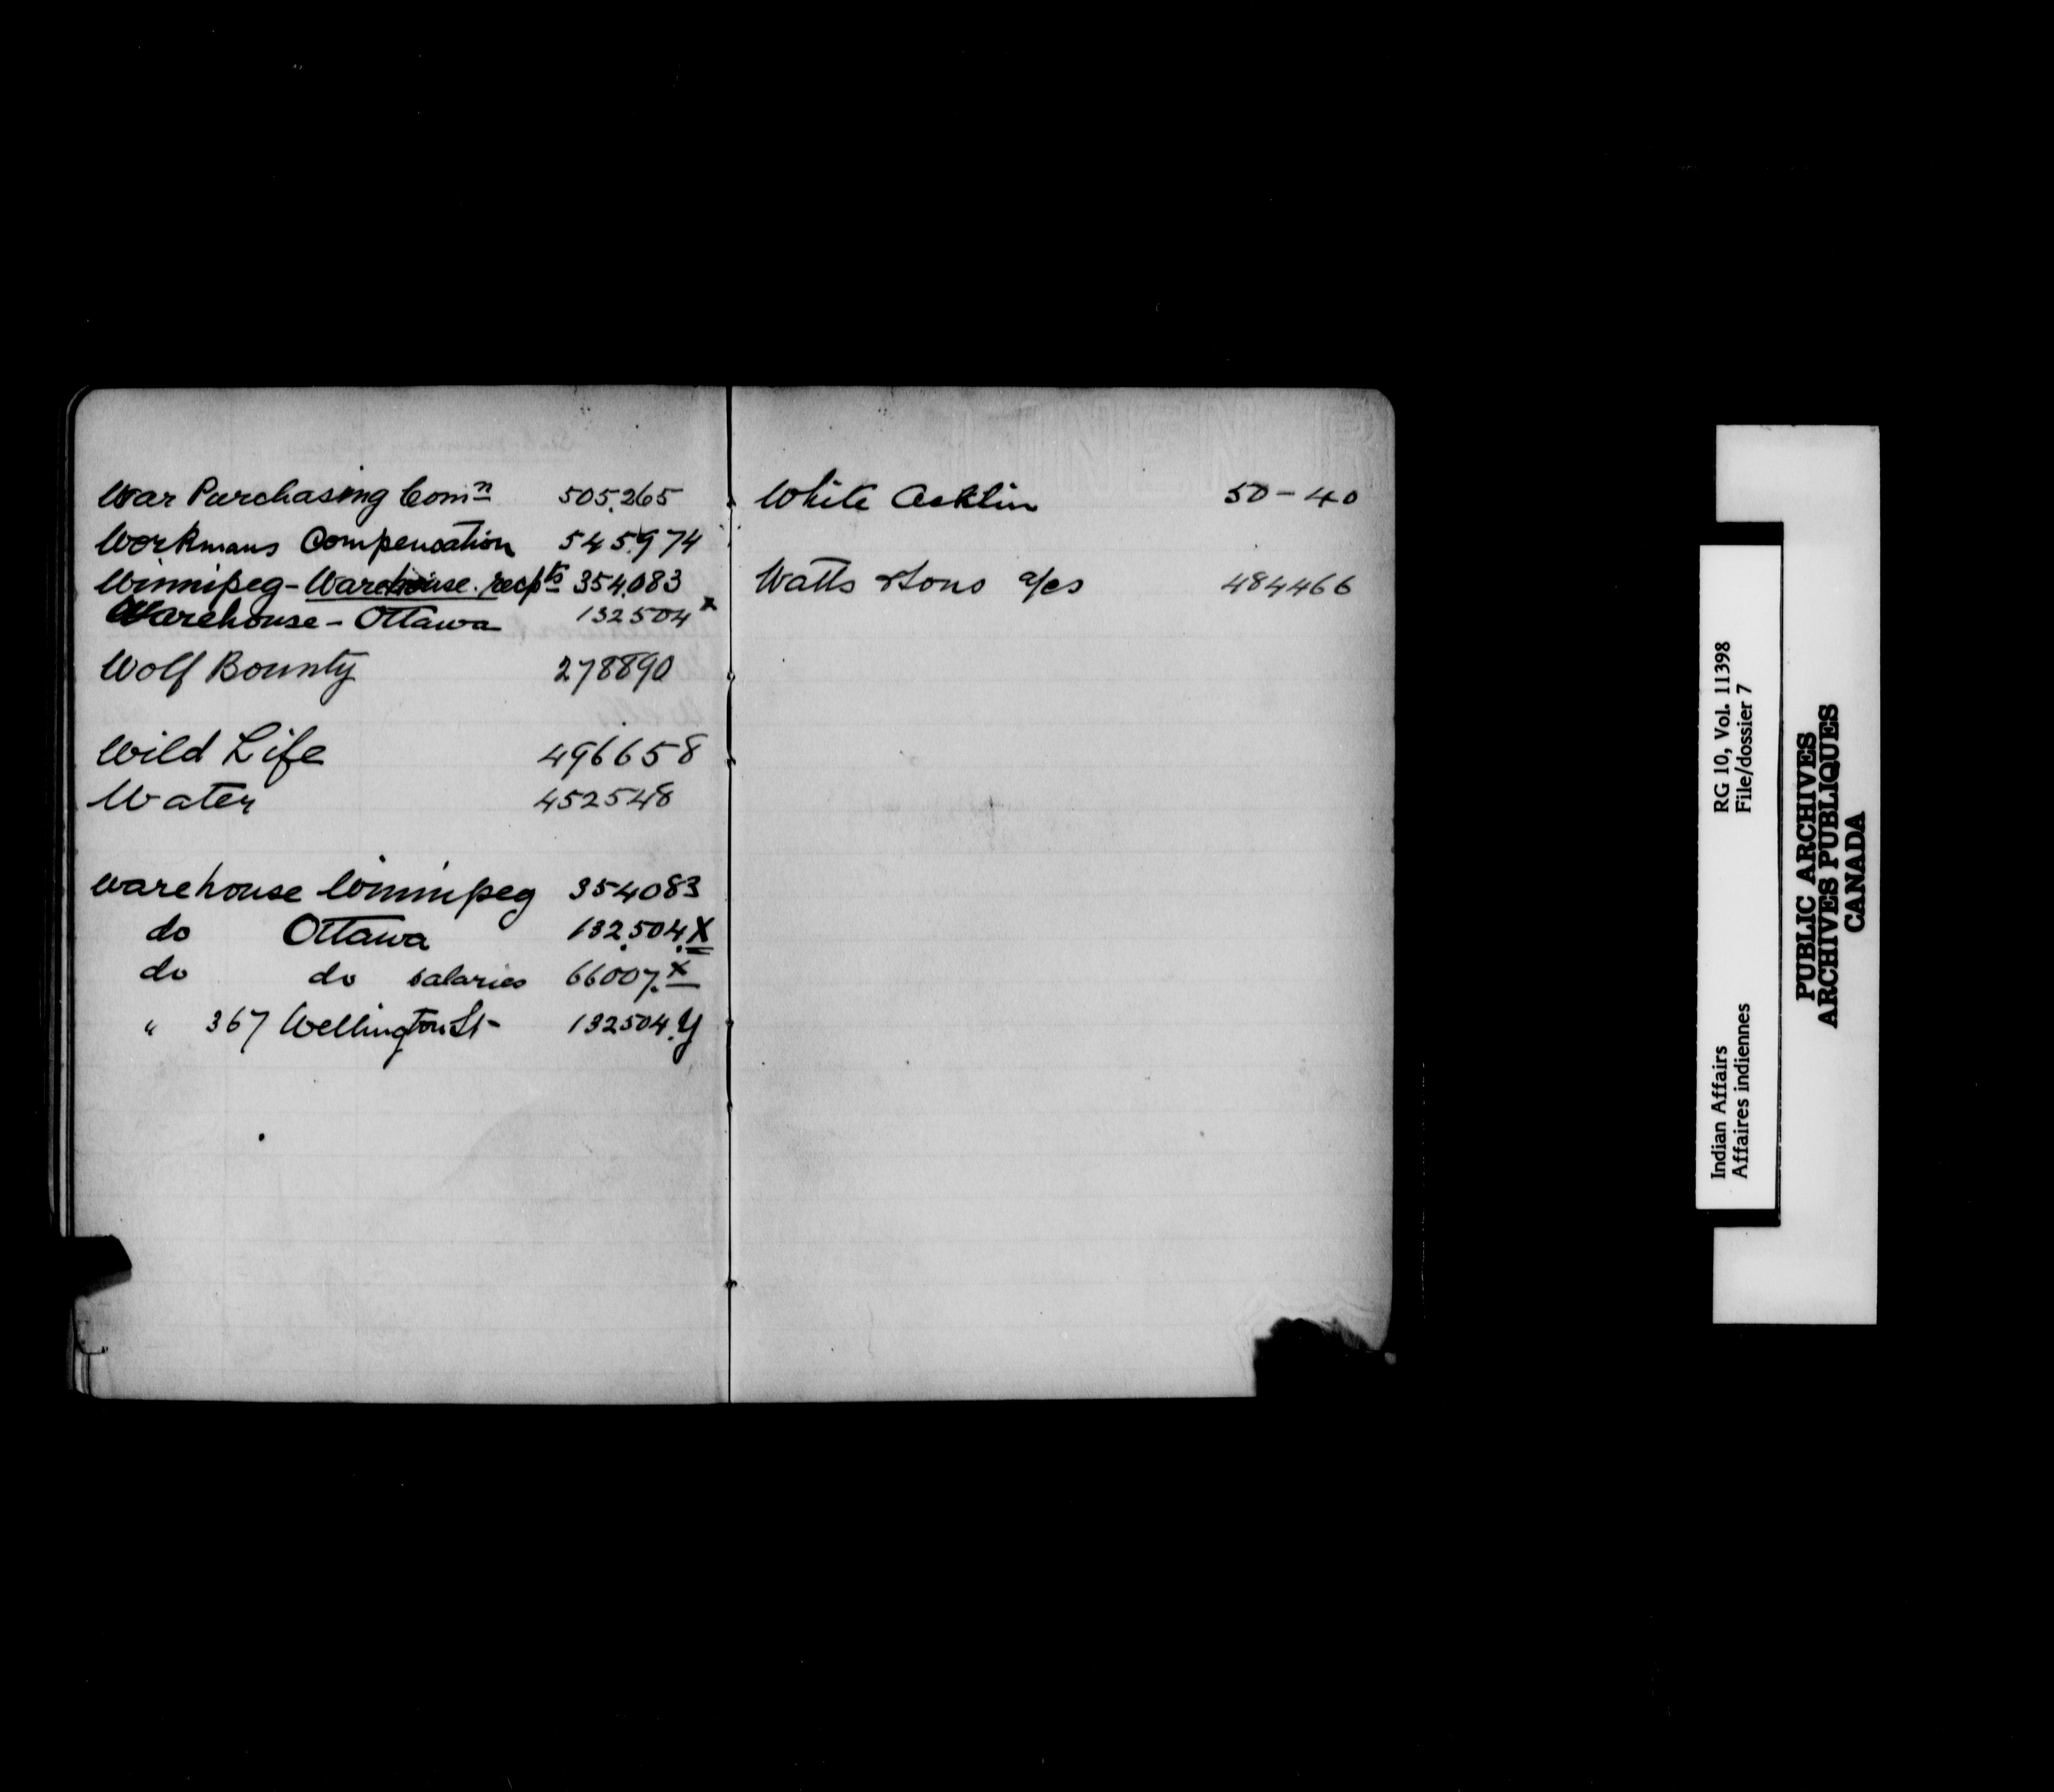 War Purchasing Comn 505,265
Workmans Compensation 545,974
Winnipeg - Warehouse recpts 354,083
Warehouse - Ottawa 132504x
Wolf Bounty 278890
Wild Life 496658
Water 452548
Warehouse Winnipeg 354083
do Ottawa 132,504.X
do do salaries 66007.x
" 367 Wellington St - 132504.Y
White 50-40
Watts & Sons a/cs 484466
Indian Affairs RG 10, Vol. 11398
Affaires indiennes File/dossier 7
PUBLIC ARCHIVES
ARCHIVES PUBLIQUES
CANADA